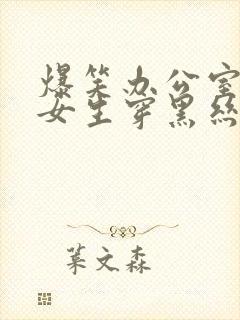 爆笑办公室
女生穿黑丝
叶文森